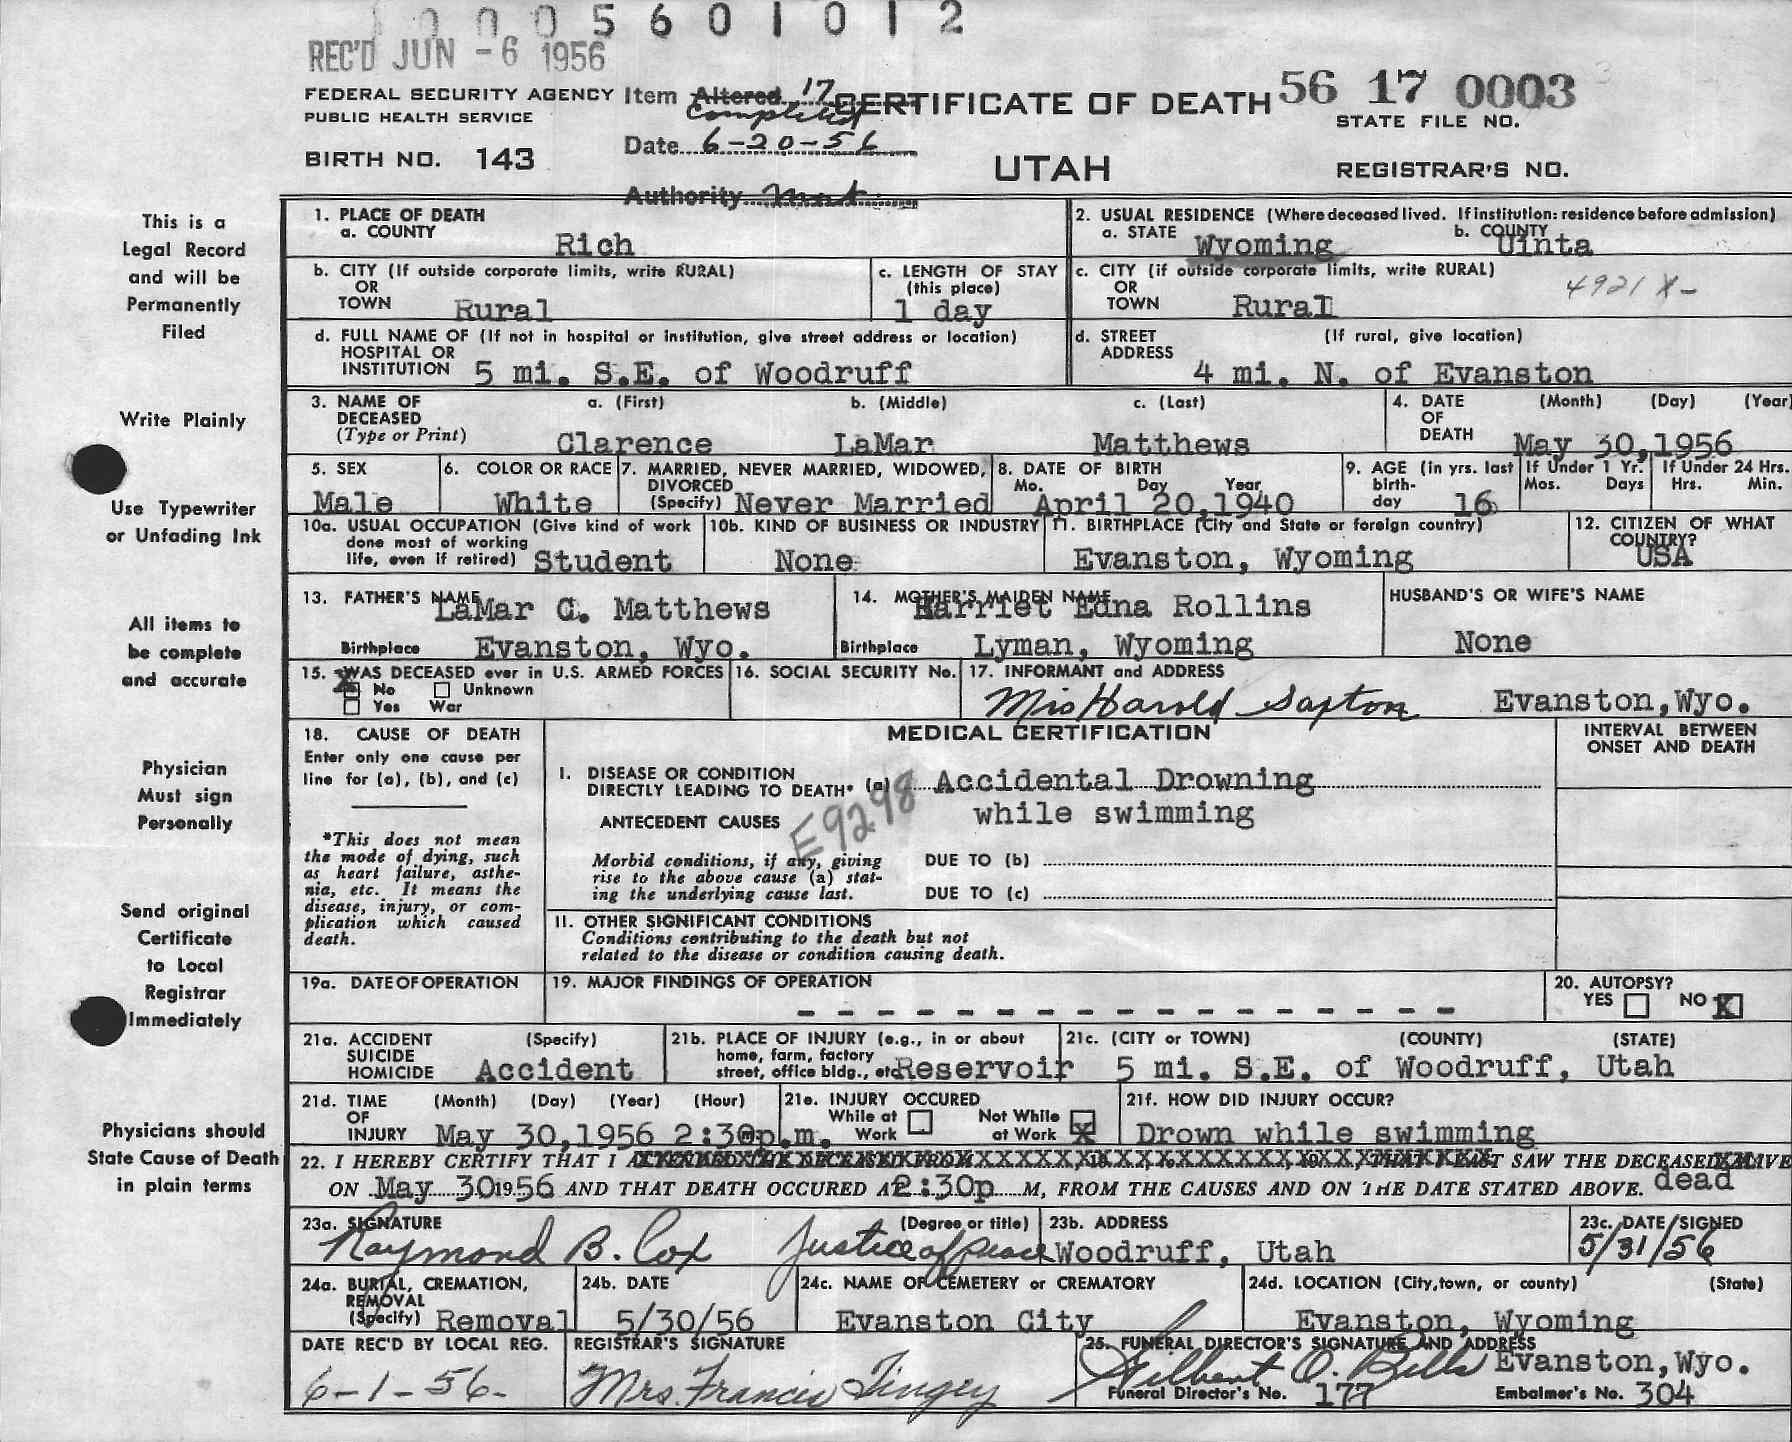 0005601012
REC'D JUN -6 1956
FEDERAL SECURITY AGENCY
PUBLIC HEALTH SERVICE
BIRTH NO. 143
Item Altered 17
Completed
Date 6-20-56
Authority
CERTIFICATE OF DEATH
UTAH
56 17 0003
STATE FILE NO.
REGISTRAR'S NO.
This is a
Legal Record
and will be
Permanently
Filed
Write Plainly
Use Typewriter
or Unfading Ink
All items to
be complete
and accurate
Physician
Must sign
Personally
Send original
Certificate
to Local
Registrar
Immediately
Physicians should
State Cause of Death
in plain terms
1. PLACE OF DEATH
a. COUNTY Rich
2. USUAL RESIDENCE (Where deceased lived. If institution: residence before admission)
a. STATE Wyoming b. COUNTY Uinta
b. CITY (If outside corporate limits, write RURAL)
OR
TOWN Rural
c. LENGTH OF STAY
(this place)
1 day
c. CITY (if outside corporate limits, write RURAL)
OR
TOWN Rural
4921 X-
d. FULL NAME OF (If not in hospital or institution, give street address or location)
HOSPITAL OR
INSTITUTION 5 mi. S.E. of Woodruff
d. STREET (If rural, give location)
ADDRESS
4 mi. N. of Evanston
3. NAME OF a. (First) b. (Middle) c. (Last)
DECEASED
(Type or Print) Clarence LaMar Matthews
4. DATE (Month) (Day) (Year)
OF
DEATH May 30,1956
5. SEX
Male
6. COLOR OR RACE
White
7. MARRIED, NEVER MARRIED, WIDOWED,
DIVORCED
(Specify) Never Married
8. DATE OF BIRTH
Mo. Day Year
April 20,1940
9. AGE (in yrs. last
birth-
day 16
If Under 1 Yr.
Mos. Days
If Under 24 Hrs.
Hrs. Min.
10a. USUAL OCCUPATION (Give kind of work
done most of working
life, even if retired) Student
10b. KIND OF BUSINESS OR INDUSTRY
None
11. BIRTHPLACE (City and State or foreign country)
Evanston, Wyoming
12. CITIZEN OF WHAT
COUNTRY?
USA
13. FATHER'S NAME
LaMar C. Matthews
Birthplace Evanston, Wyo.
14. MOTHER'S MAIDEN NAME
Harriet Edna Rollins
Birthplace Lyman, Wyoming
HUSBAND'S OR WIFE'S NAME
None
15. WAS DECEASED ever in U.S. ARMED FORCES
X No Unknown
Yes War
16. SOCIAL SECURITY No.
17. INFORMANT and ADDRESS
Mrs Harold Saxton Evanston,Wyo.
18. CAUSE OF DEATH
Enter only one cause per
line for (a), (b), and (c)
*This does not mean
the mode of dying, such
as heart failure, asthe-
nia, etc. It means the
disease, injury, or com-
plication which caused
death.
MEDICAL CERTIFICATION
INTERVAL BETWEEN
ONSET AND DEATH
I. DISEASE OR CONDITION
DIRECTLY LEADING TO DEATH* (a) Accidental Drowning
while swimming
E9298
ANTECEDENT CAUSES
Morbid conditions, if any, giving
rise to the above cause (a) stat-
ing the underlying cause last.
DUE TO (b)
DUE TO (c)
II. OTHER SIGNIFICANT CONDITIONS
Conditions contributing to the death but not
related to the disease or condition causing death.
19a. DATE OF OPERATION
19. MAJOR FINDINGS OF OPERATION
20. AUTOPSY?
YES NO X
21a. ACCIDENT (Specify)
SUICIDE
HOMICIDE Accident
21b. PLACE OF INJURY (e.g., in or about
home, farm, factory
street, office bldg., etc Reservoir
21c. (CITY or TOWN) (COUNTY) (STATE)
5 mi. S.E. of Woodruff, Utah
21d. TIME (Month) (Day) (Year) (Hour)
OF
INJURY May 30,1956 2:30p.m.
21e. INJURY OCCURED
While at Work
Not While at Work X
21f. HOW DID INJURY OCCUR?
Drown while swimming
22. I HEREBY CERTIFY THAT I ATTENDED THE DECEASED FROM XXXXXX, 19XX, THAT I LAST SAW THE DECEASED ALIVE
ON May 30 1956 AND THAT DEATH OCCURED AT 2:30p M, FROM THE CAUSES AND ON THE DATE STATED ABOVE. dead
23a. SIGNATURE (Degree or title)
Raymond B. Cox Justice of peace
23b. ADDRESS
Woodruff, Utah
23c. DATE SIGNED
5/31/56
24a. BURIAL, CREMATION,
REMOVAL
(Specify) Removal
24b. DATE
5/30/56
24c. NAME OF CEMETERY or CREMATORY
Evanston City
24d. LOCATION (City, town, or county) (State)
Evanston, Wyoming
DATE REC'D BY LOCAL REG.
6-1-56-
REGISTRAR'S SIGNATURE
Mrs. Francis Tingey
25. FUNERAL DIRECTOR'S SIGNATURE AND ADDRESS
Gilbert O. Bills Evanston,Wyo.
Funeral Director's No. 177 Embalmer's No. 304